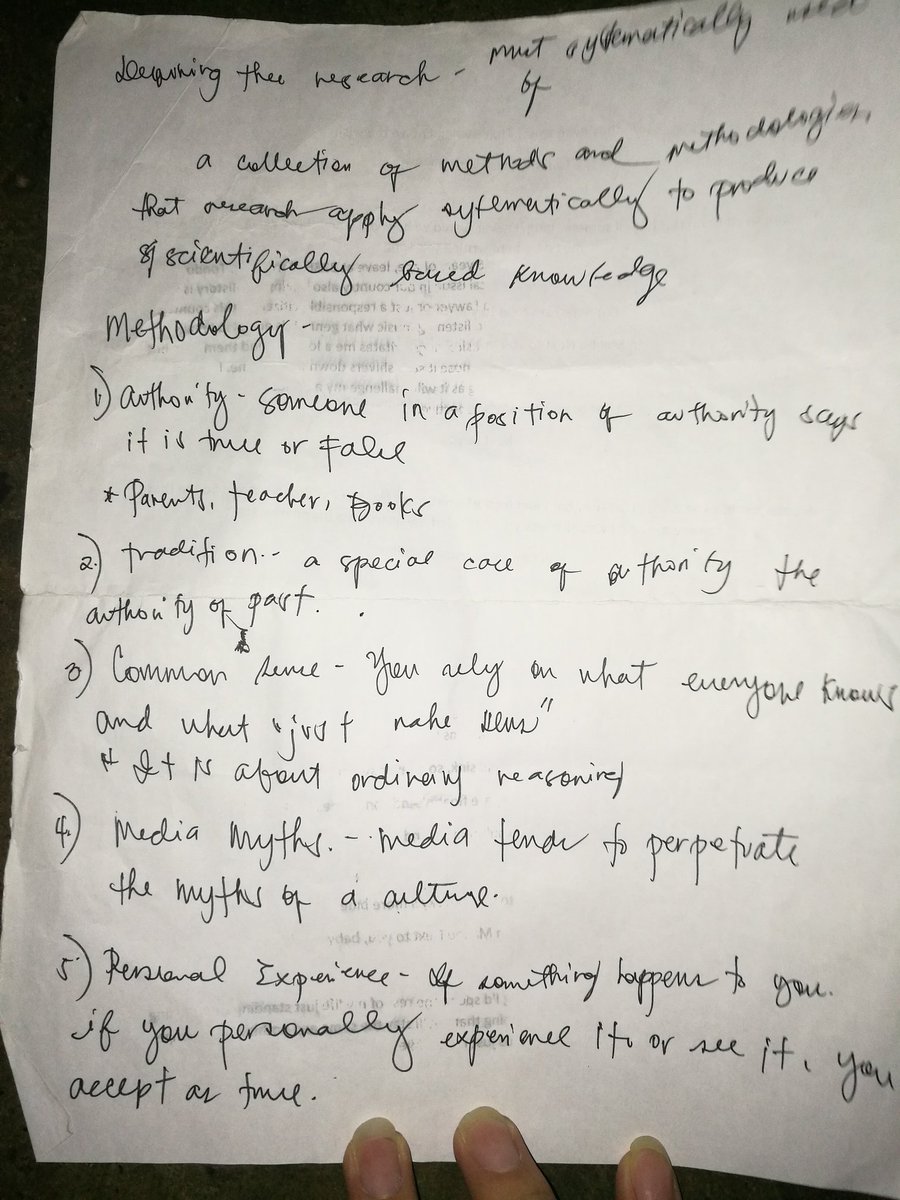 the research - must systematically
of
a collection of methods and methodologies
that research apply sytematically to produce
scientifically based knowledge
Methodology -
1) authority - someone in a position of authority says
it is true or False
* Parents, teacher, Books
2.) tradition - a special case of authority the
authority of past.
3) Common sense - You rely on what everyone knows
and what "just make sens"
* It is about ordinary reasoning
4.) Media Myths. - media tends to perpetuate
the myths of a culture.
5.) Personal Experience - If something happens to you.
if you personally experience it. or see it, you
accept as true.